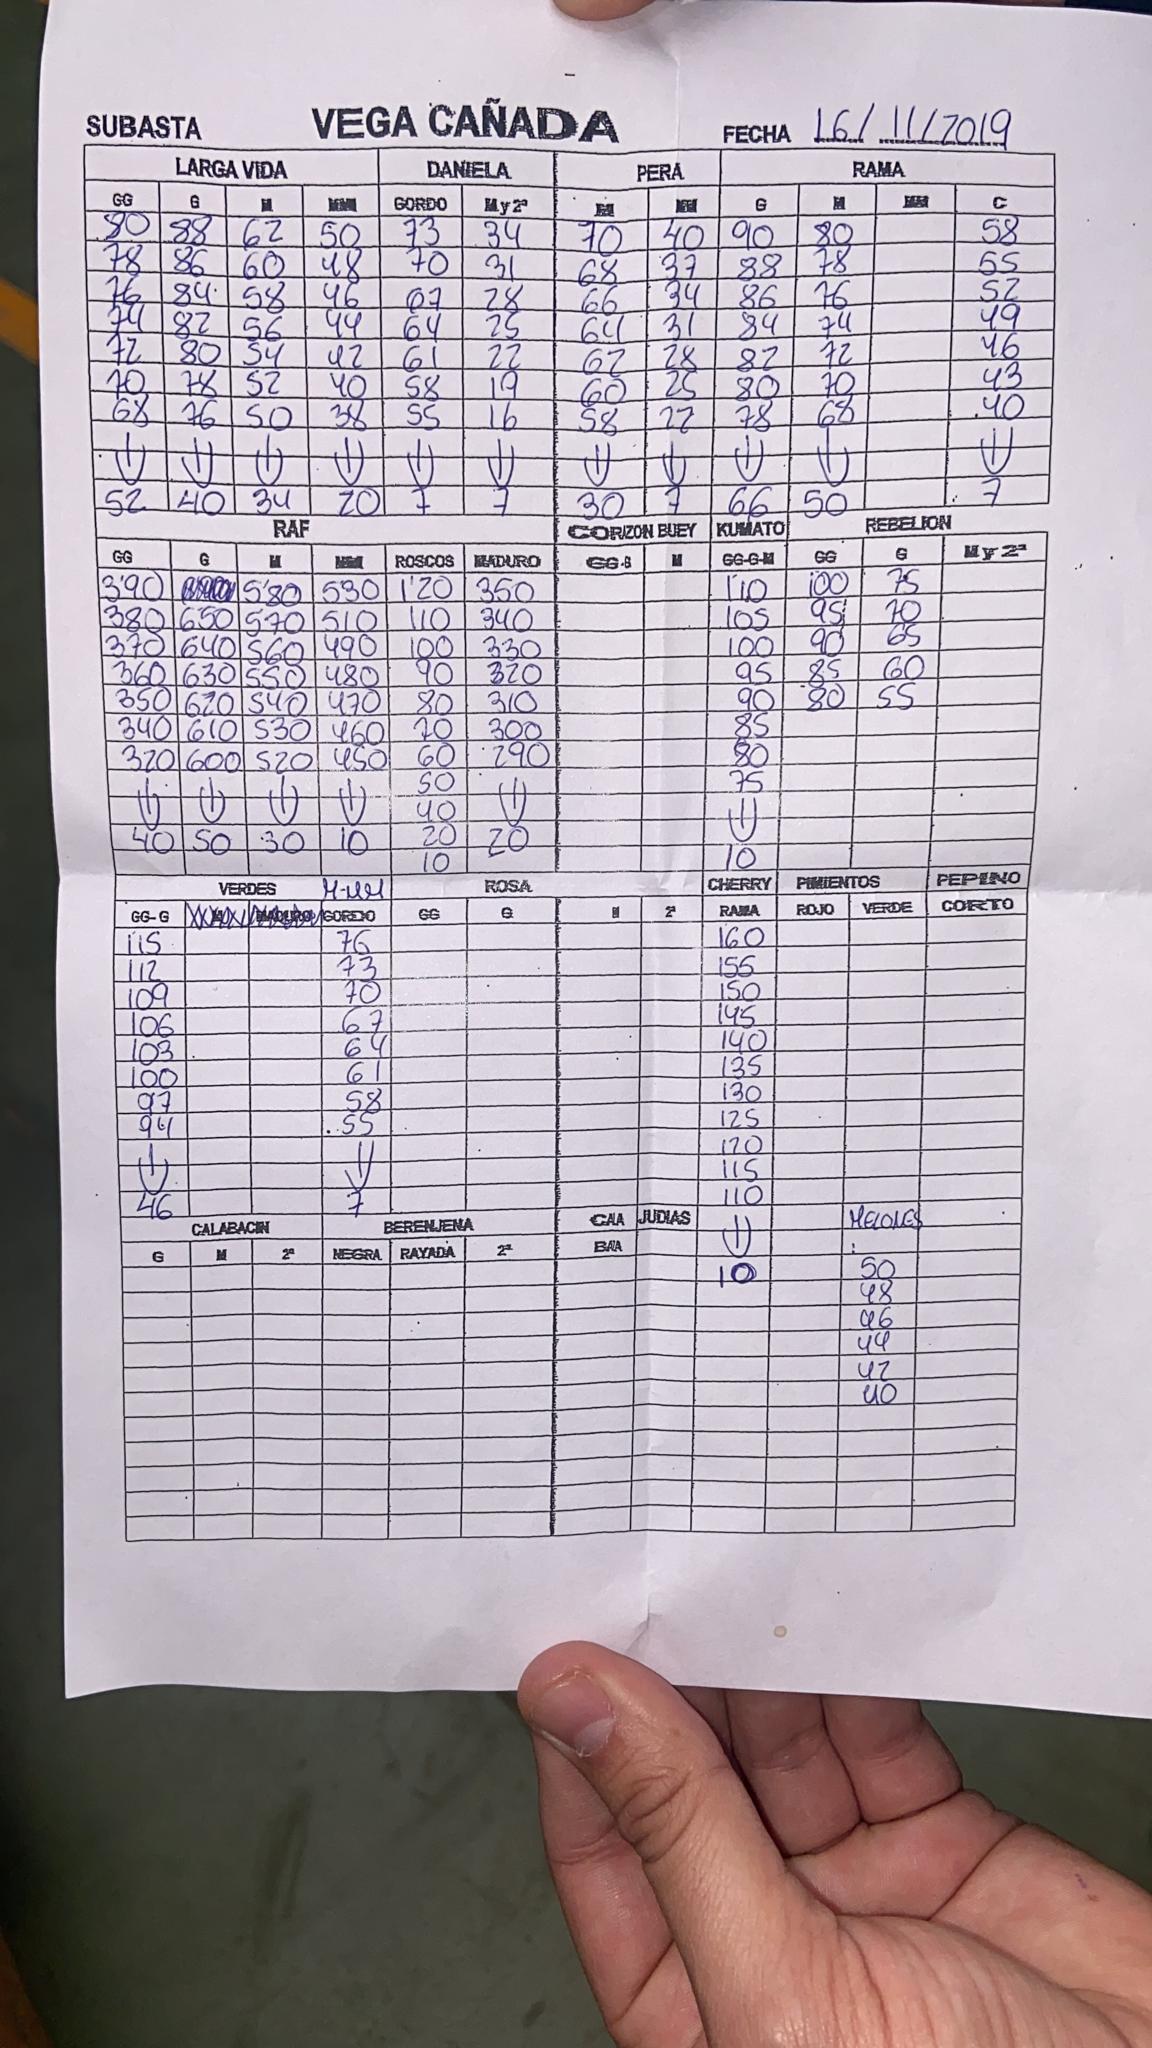 SUBASTA VEGA CAÑADA FECHA 16/11/2019
LARGA VIDA DANIELA PERA RAMA
GG G M MM GORDO M y 2ª M MM G M MM C
80 88 62 50 73 34 70 40 90 80 58
78 86 60 48 70 31 68 37 88 78 55
76 84 58 46 67 28 66 34 86 76 52
74 82 56 44 64 25 64 31 84 74 49
72 80 54 42 61 22 62 28 82 72 46
70 78 52 40 58 19 60 25 80 70 43
68 76 50 38 55 16 58 22 78 68 40
52 40 34 20 7 7 30 7 66 50 7
RAF CORIZON BUEY KUMATO REBELION
GG G M MM ROSCOS MADURO GG-G M GG-G-M GG G M y 2ª
3'90 5'80 530 1'20 350 110 100 75
380 650 570 510 110 340 105 95 70
370 640 560 490 100 330 100 90 65
360 630 550 480 90 320 95 85 60
350 620 540 470 80 310 90 80 55
340 610 530 460 70 300 85
320 600 520 450 60 290 80
50 75
40
40 50 30 10 20 20
10 10
VERDES M-MM ROSA CHERRY PIMIENTOS PEPINO
GG-G GORDO GG G M 2ª RAMA ROJO VERDE CORTO
115 76 160
112 73 155
109 70 150
106 67 145
103 64 140
100 61 135
97 58 130
94 55 125
120
115
46 7 110
CALABACIN BERENJENA CAA JUDIAS MELONES
G M 2ª NEGRA RAYADA 2ª BAA
10 50
48
46
44
42
40